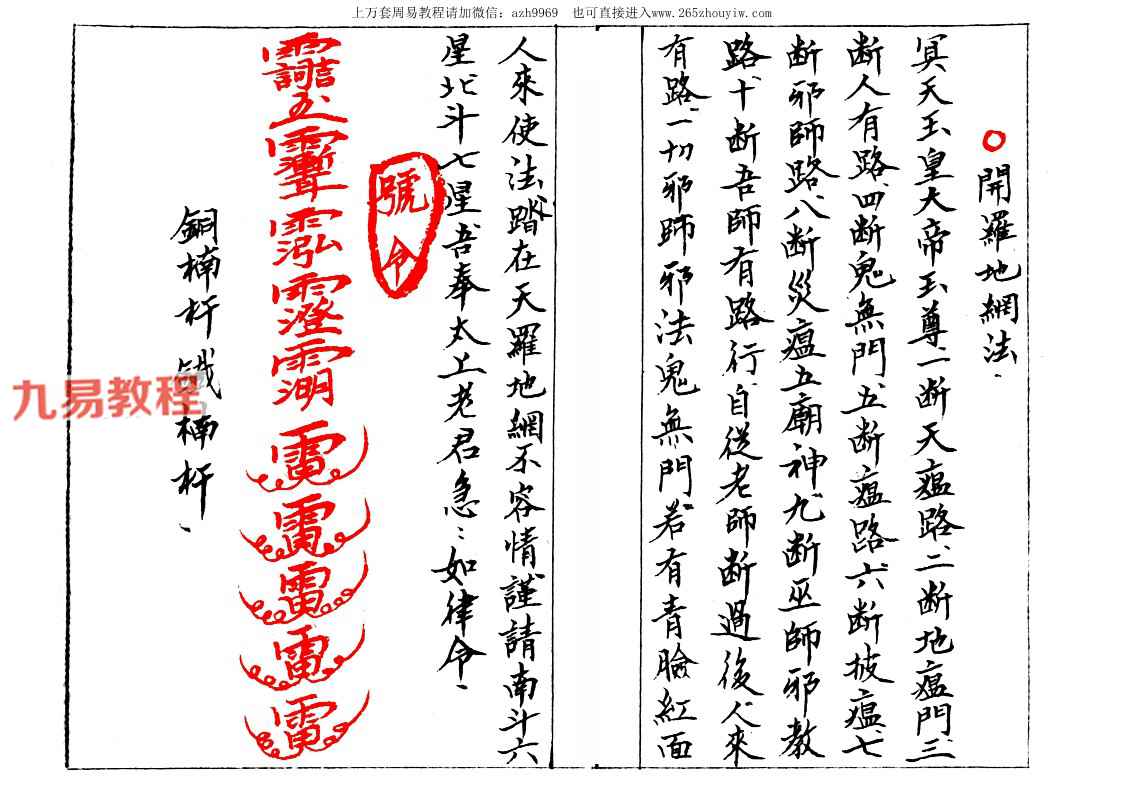 上万套周易教程请加微信：azh9969　也可直接进入www.265zhouyiw.com
開羅地網法、
冥天玉皇大帝玉尊、一断天瘟路、二断地瘟門、三
断人有路、四断鬼無門、五断瘟路、六断披瘟、七
断邪師路、八断災瘟五廟神、九断巫師邪教
路、十断吾師有路行、自從老師断過後、人來
有路、一切邪師邪法鬼無門、若有青臉紅面
人來使法、踏在天羅地網不容情、謹請南斗六
星北斗七星、吾奉太上老君急:如律令、
號令
雷雷雷雷雷
銅楠杆鐵楠杆、
九易教程